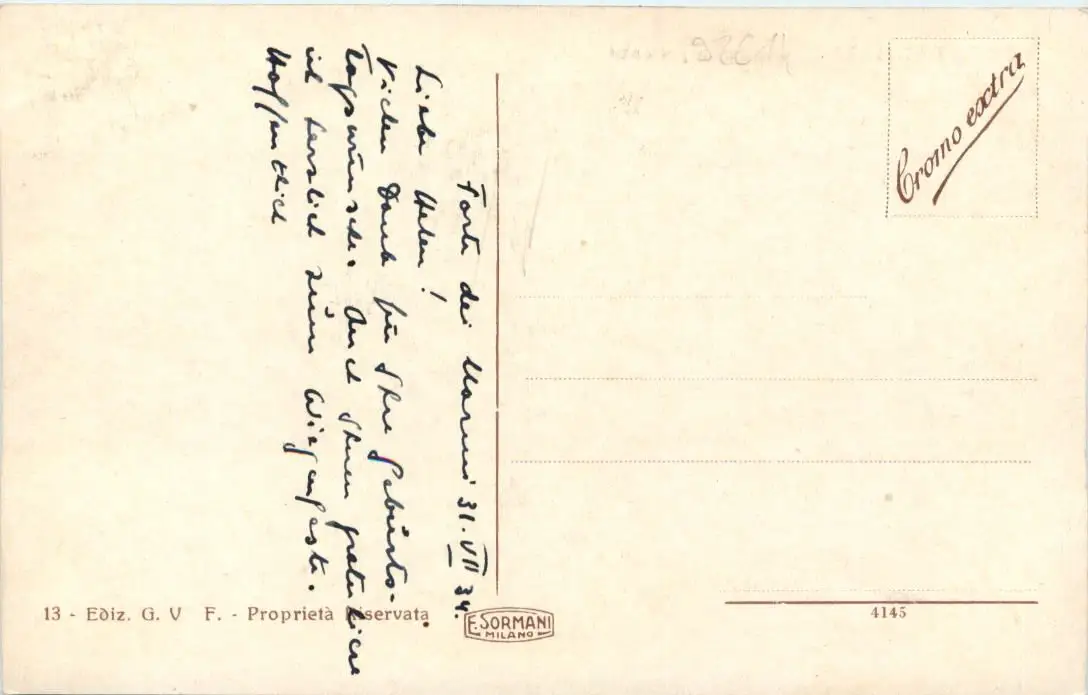 Forte dei Marmi 31. VII 34.
Liebe Helen!
Vielen Dank für Ihre Geburts-
tagswünsche. Auch Ihnen gratuliere
ich herzlich zum Wiegenfeste.
Hoffentlich
Cromo extra
13 - Ediz. G. V F. - Proprietà riservata
E. SORMANI
MILANO
4145